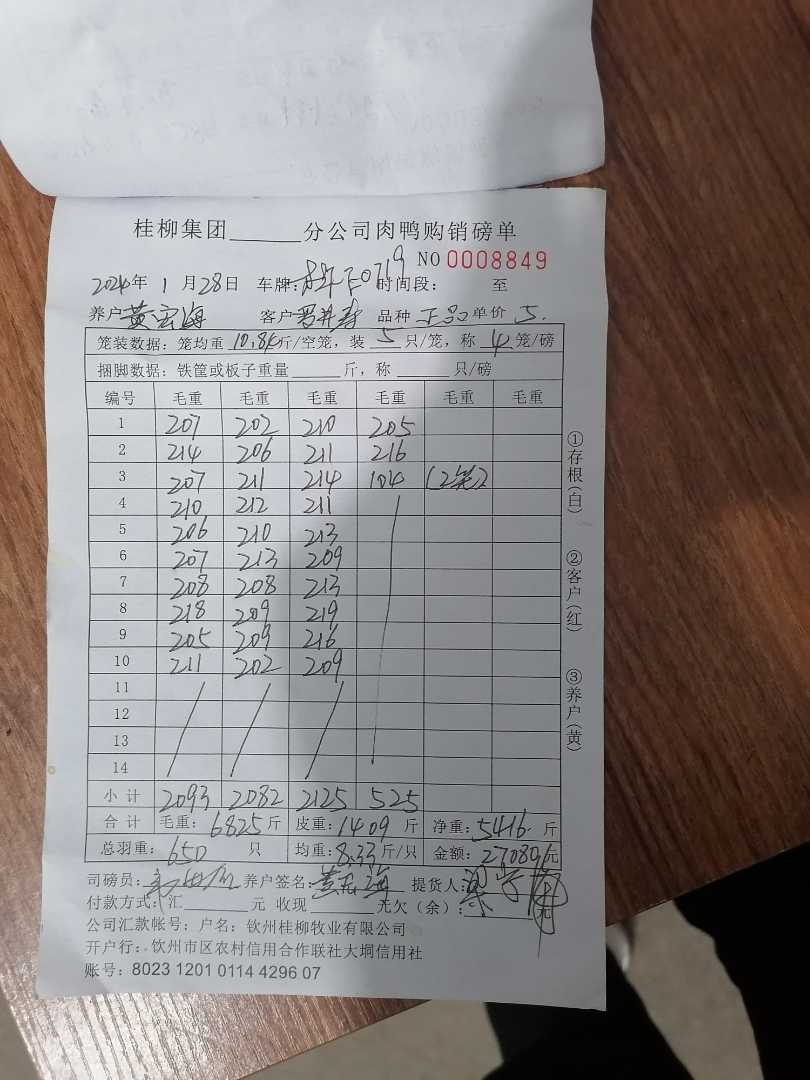 桂柳集团______分公司肉鸭购销磅单
NO 0008849
2024年 1 月 28日 车牌: 0719 时间段: 至
养户 黄宏海 客户 品种 正品 单价 5.
笼装数据: 笼均重 10.84 斤/空笼, 装 5 只/笼, 称 4 笼/磅
捆脚数据: 铁筐或板子重量______斤, 称______只/磅
编号 毛重 毛重 毛重 毛重 毛重 毛重
1 207 202 210 205
2 214 206 211 216
3 207 211 214 104 (2笼)
4 210 212 211
5 206 210 213
6 207 213 209
7 208 208 213
8 218 209 219
9 205 209 216
10 211 202 209
11
12
13
14
小计 2093 2082 2125 525
合计 毛重: 6825 斤 皮重: 1409 斤 净重: 5416 斤
总羽重: 650 只 均重: 8.33 斤/只 金额: 27089.6 元
司磅员: 养户签名: 黄宏海 提货人:
付款方式: 汇______元 收现______元欠(余): 元
公司汇款帐号: 户名: 钦州桂柳牧业有限公司
开户行: 钦州市区农村信用合作联社大垌信用社
账号: 8023 1201 0114 4296 07
①存根(白)
②客户(红)
③养户(黄)